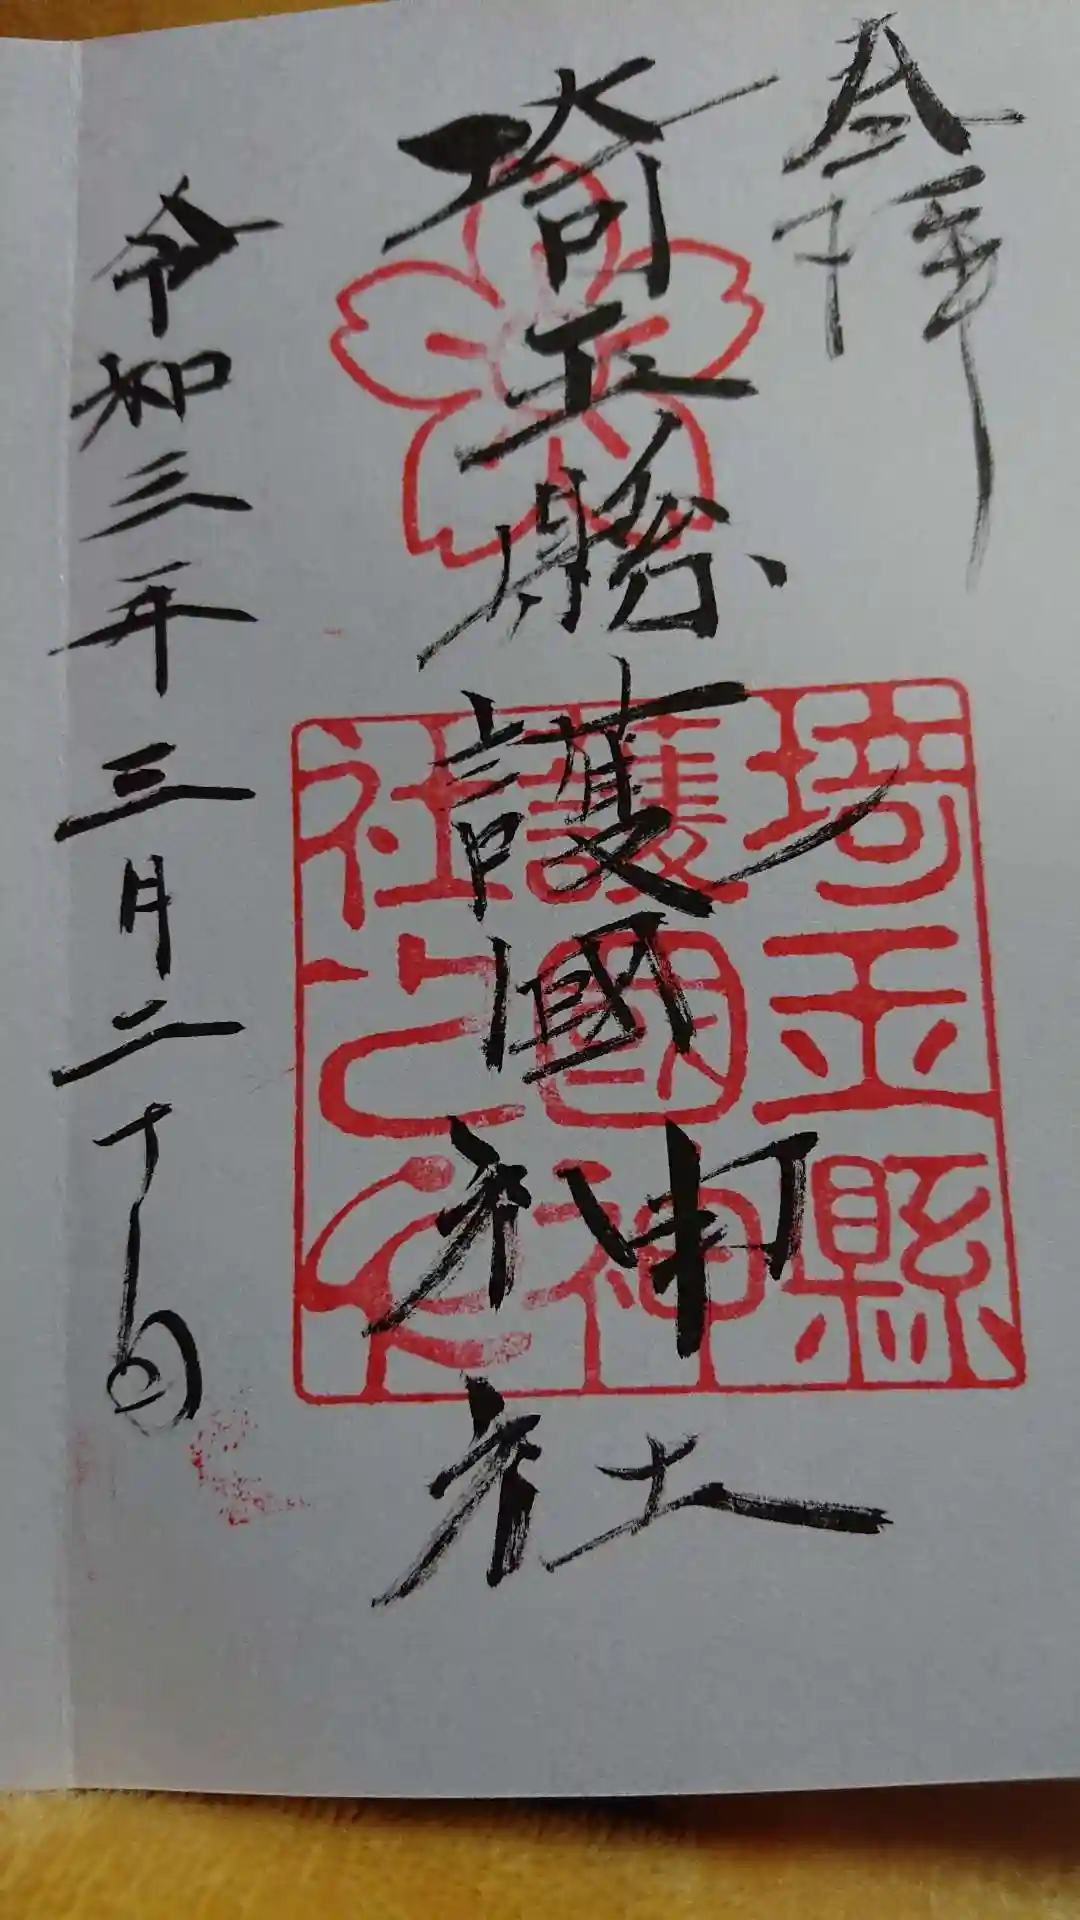 参拝
埼玉縣護國神社
埼玉縣
護國神
社之印
令和三年三月二十一日